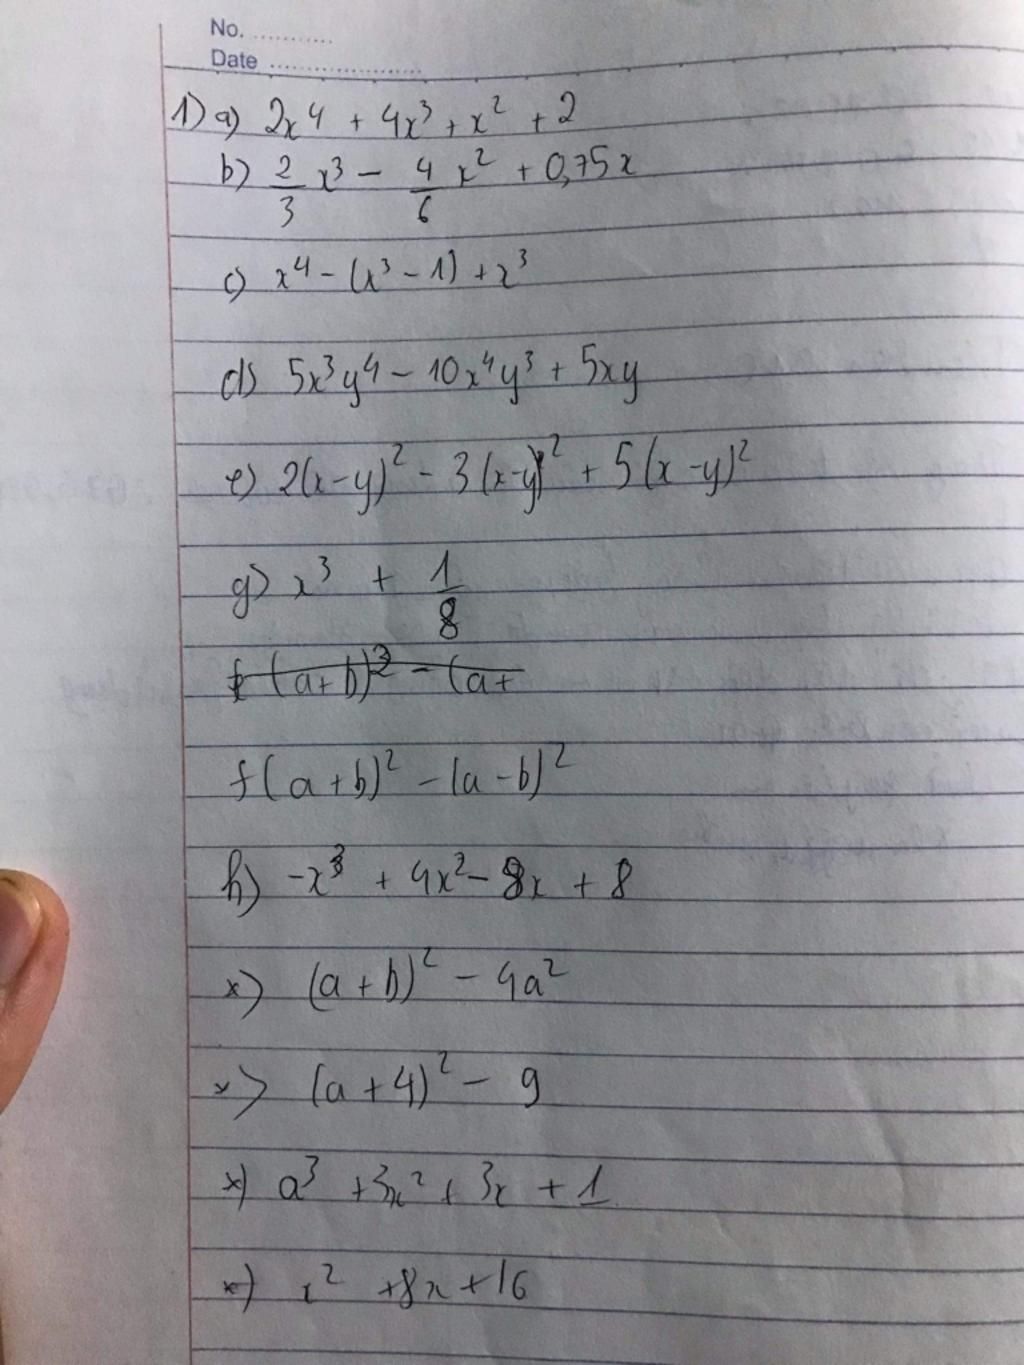 No. ...........
Date ....................
1) a) 2x⁴ + 4x³ + x² + 2
b) 2/3 x³ - 4/6 x² + 0,75x
c) x⁴ - (x³ - 1) + x³
d) 5x³y⁴ - 10x⁴y³ + 5xy
e) 2(x-y)² - 3(x-y)² + 5(x-y)²
g) x³ + 1/8
f (a+b)³ - (a+
f (a+b)² - (a-b)²
h) -x³ + 4x² - 8x + 8
x) (a+b)² - 4a²
x) (a+4)² - 9
x) a³ + 3x² + 3x + 1
x) x² + 8x + 16